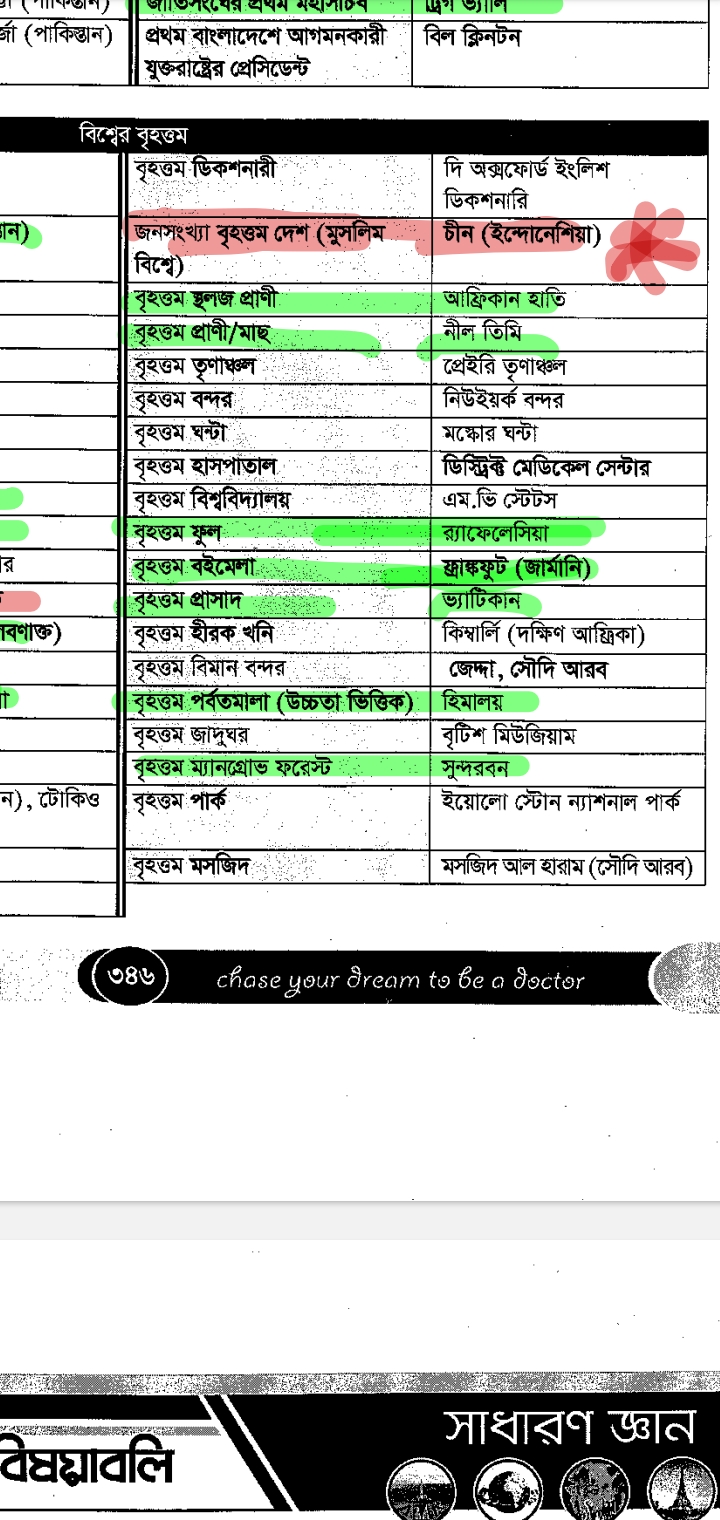 প্রথম বাংলাদেশে আগমনকারী বিল ক্লিনটন
(পাকিস্তান)
যুক্তরাষ্ট্রের প্রেসিডেন্ট
বিশ্বের বৃহত্তম
বৃহত্তম ডিকশনারী দি অক্সফোর্ড ইংলিশ
ডিকশনারি
জনসংখ্যা বৃহত্তম দেশ (মুসলিম চীন (ইন্দোনেশিয়া)
বিশ্বে)
বৃহত্তম স্থলজ প্রাণী আফ্রিকান হাতি
বৃহত্তম প্রাণী/মাছ নীল তিমি
বৃহত্তম তৃণাঞ্চল প্রেইরি তৃণাঞ্চল
বৃহত্তম বন্দর নিউইয়র্ক বন্দর
বৃহত্তম ঘন্টা মস্কোর ঘন্টা
বৃহত্তম হাসপাতাল ডিস্ট্রিক্ট মেডিকেল সেন্টার
বৃহত্তম বিশ্ববিদ্যালয় এম.ভি স্টেটস
বৃহত্তম ফুল র‍্যাফেলেসিয়া
বৃহত্তম বইমেলা ফ্রাঙ্কফুট (জার্মানি)
বৃহত্তম প্রাসাদ ভ্যাটিকান
বৃহত্তম হীরক খনি কিম্বার্লি (দক্ষিণ আফ্রিকা)
বৃহত্তম বিমান বন্দর জেদ্দা, সৌদি আরব
বৃহত্তম পর্বতমালা (উচ্চতা ভিত্তিক) হিমালয়
বৃহত্তম জাদুঘর বৃটিশ মিউজিয়াম
বৃহত্তম ম্যানগ্রোভ ফরেস্ট সুন্দরবন
টোকিও বৃহত্তম পার্ক ইয়োলো স্টোন ন্যাশনাল পার্ক
বৃহত্তম মসজিদ মসজিদ আল হারাম (সৌদি আরব)
৩৪৬ chase your dream to be a doctor
সাধারণ জ্ঞান
বিষয়াবলি